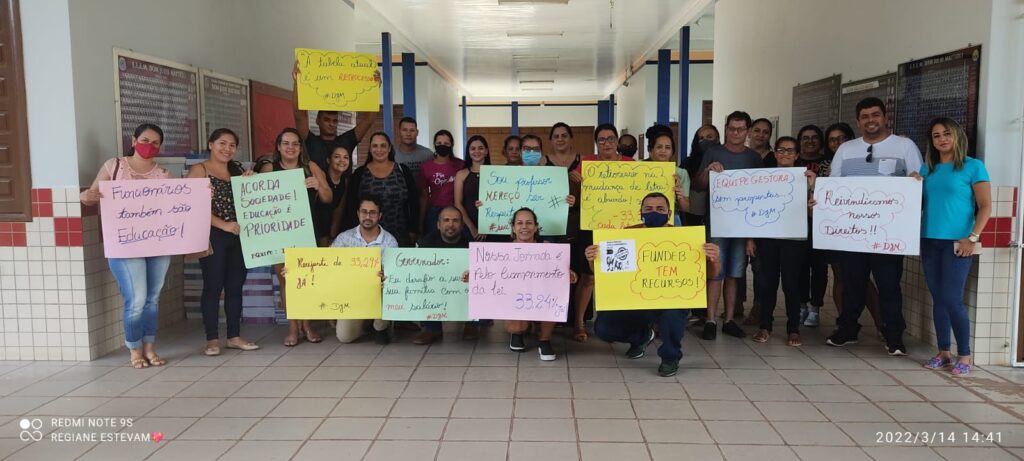 A tabela atual
é um RETROCESSO
#DJM
Funcionários
também são
Educação!
ACORDA
SOCIEDADE!
EDUCAÇÃO É
PRIORIDADE!
Reajuste de 33,24%
JÁ!
#DJM
Governador:
Eu desafio a sua
sua família com o
meu salário!
#DJM
Sou professor
MEREÇO ser
Nossa Jornada é
Pelo Cumprimento
da lei
33,24% Já!
O retrocesso na
mudança de letra
é absurdo!
FUNDEB TEM
RECURSOS!
EQUIPE GESTORA
sem propostas
#DJM
Reivindicamos
nossos
Direitos!!
#DJM
REDMI NOTE 9S
REGIANE ESTEVAM
2022/3/14 14:41